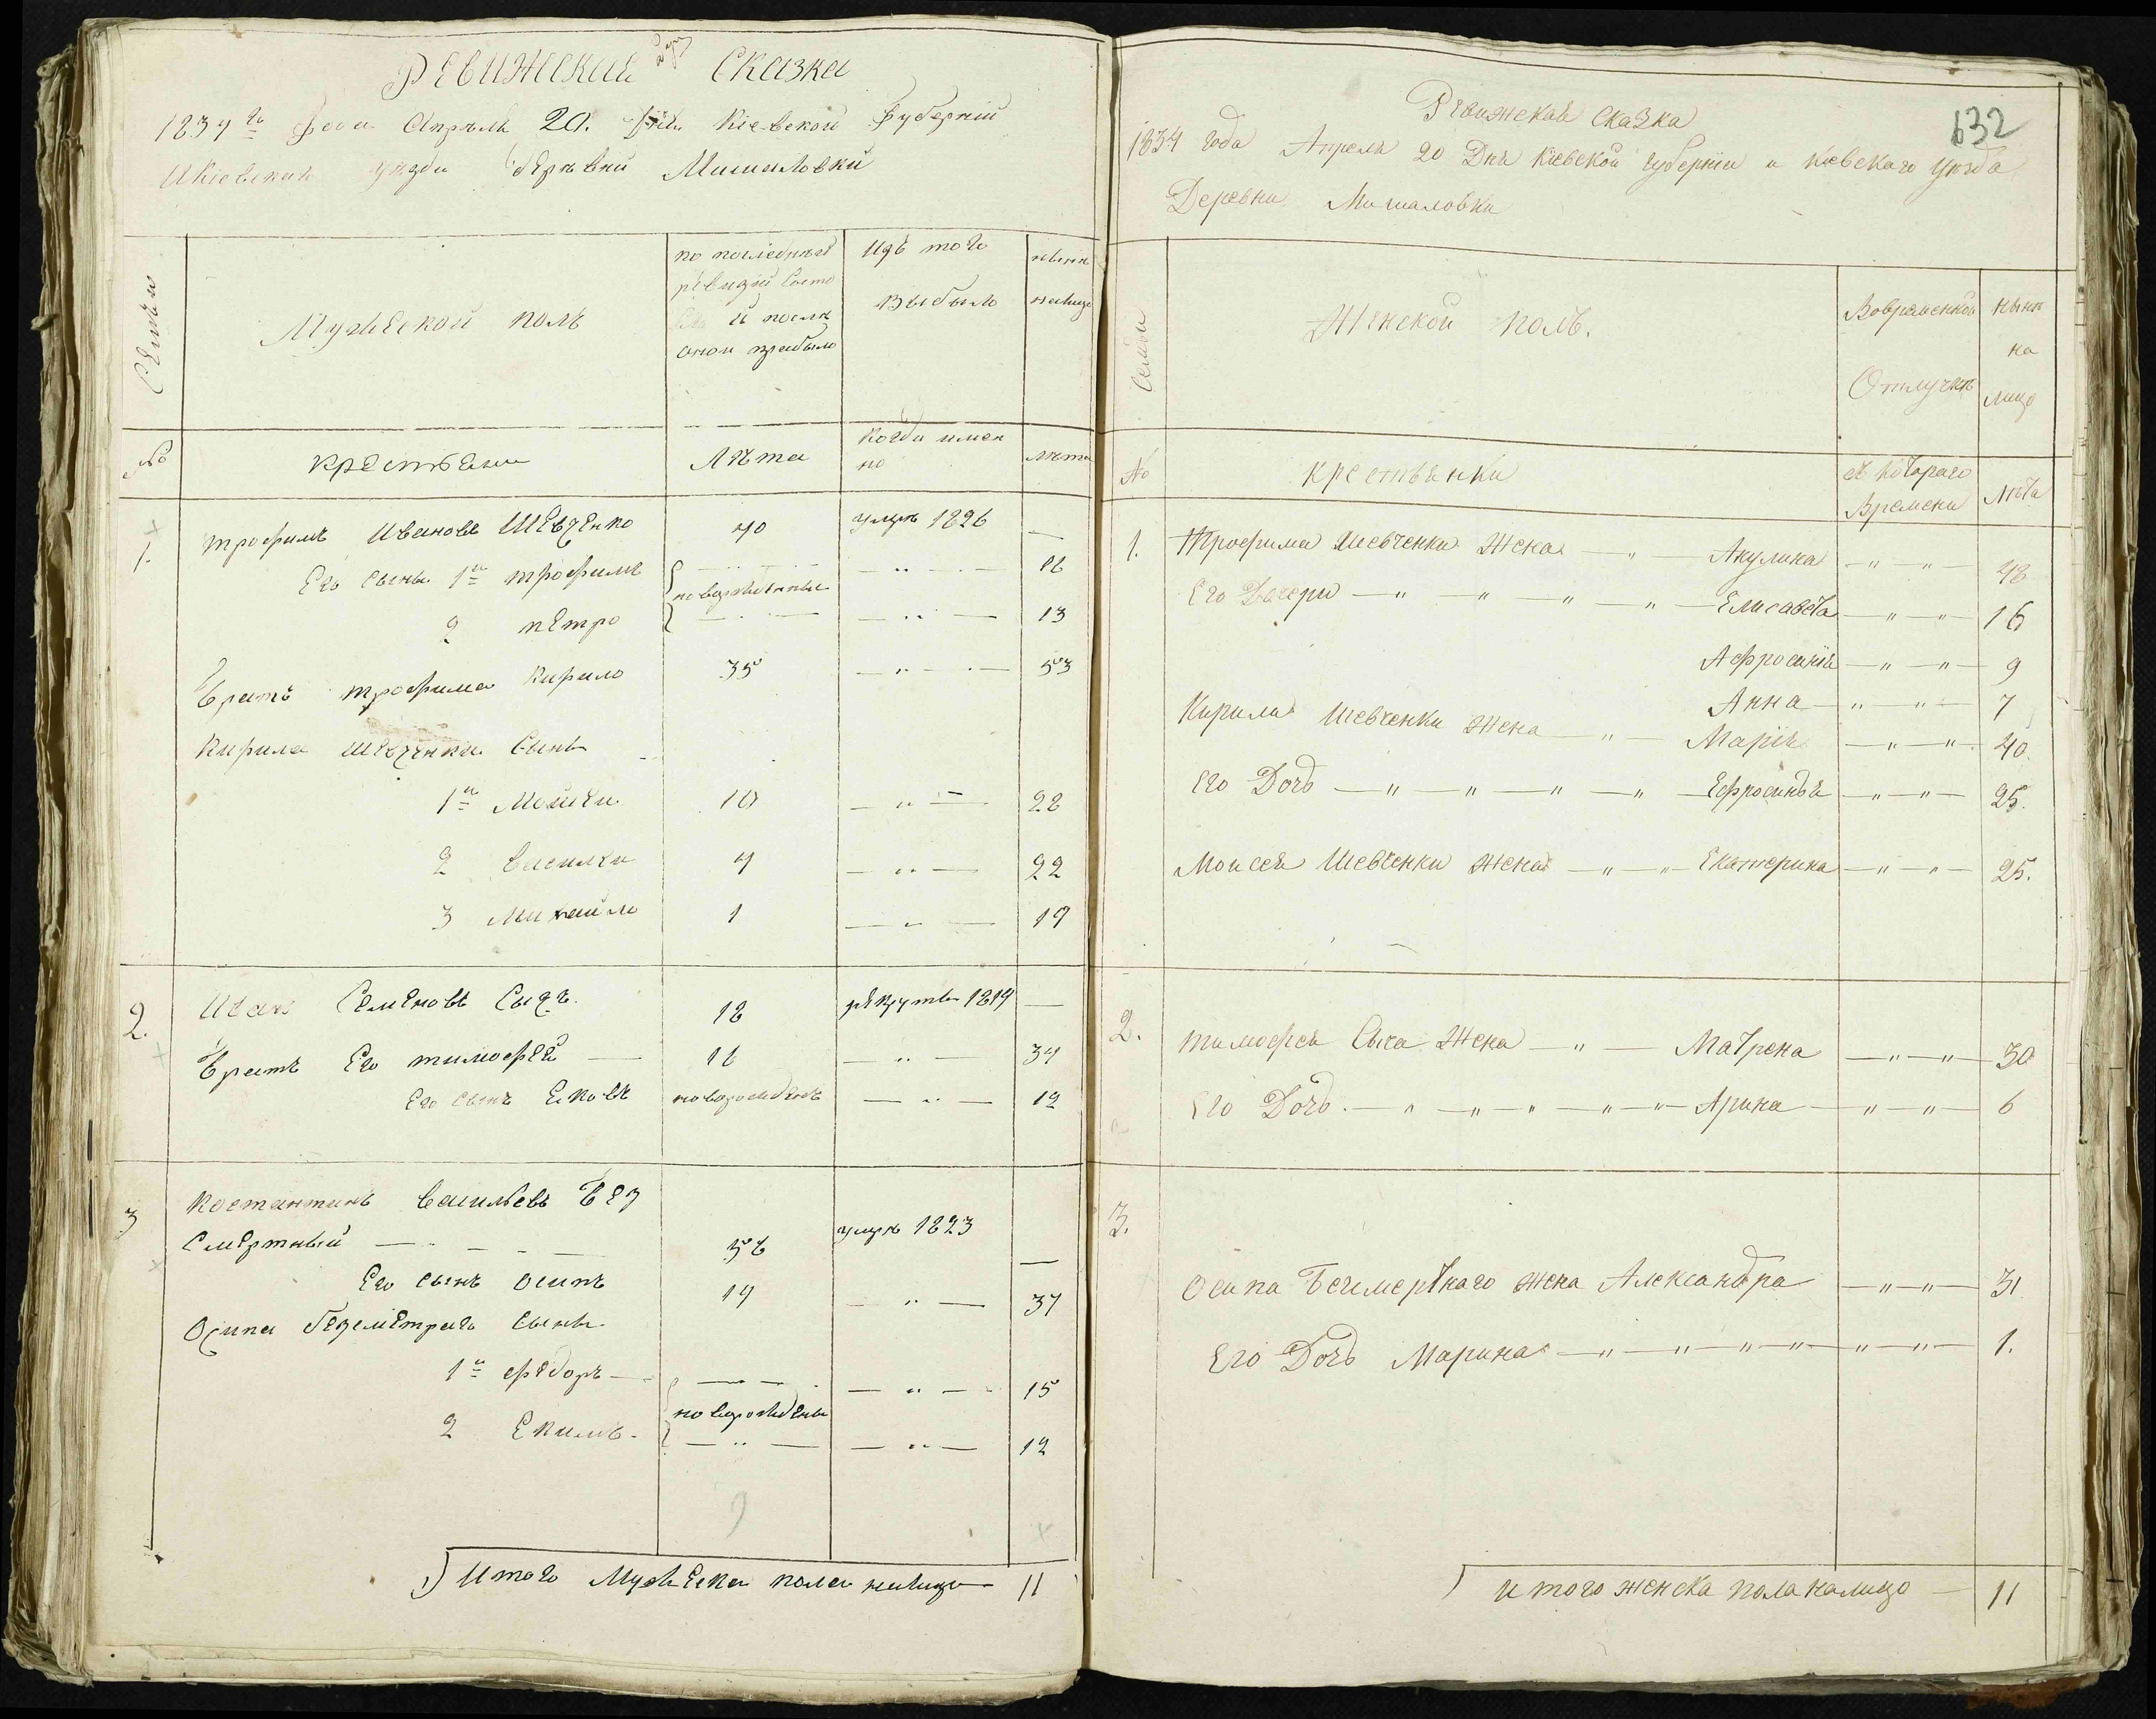 Ревижская Сказка
1834 го Года Апреля 20. Дня Кіевской Губерній
И Кіевскаго уезда деревни Мишаловки
Семьи
Мужеской полъ
по последней
ревизій состо
яло и после
оной прибыло
Изъ того
выбыло
ныне
налицо
№
крестьяни
Лѣта
Когда имен
но
лѣта
1.
трофимъ Ивановъ Шевченко 40 умре 1826 —
Его сыны 1й трофимъ 18
новорожденны
2 петро 13
братъ трофима Кирило 35 53
Кирила шевченки сыны
1й Мойсей 10 28
2 василей 4 22
3 михайло 1 19
2.
Иван Семеновъ Сычъ. 18 рекрутъ 1819 —
братъ Его тимофей — 16 34
Его сынъ Яковъ новорожденъ 12
3
Костантинъ васильевъ Без
Смертный 58 умре 1823 —
Его сынъ осипъ 19 37
Осипа безсмертнаго сыны
1й федоръ 15
новорождены
2 Екимъ 12
9
Итого Мужеска пола налицо 11
632
Ревижская Сказка
1834 года Апреля 20 Дня Кіевской губерніи и Кіевскаго уезда
Деревни Мишаловки
Семьи
Женской полъ.
Вовременной
Отлучке
ныне
на
лицо
№
Крестьянки
съ Котораго
Времени
Лета
1. Трофима Шевченки Жена — " — Акулина — " — " — 48
Его Дочери — " — " — " — " — Елисавета — " — " — 16
Афросинія — " — " — 9
Анна — " — " — 7
Кирила Шевченки Жена — " — Марія — " — " — 40.
Его Дочь — " — " — " — " — Ефросинья — " — " — 25.
Моисея Шевченки жена — " — " — Екатерина — " — " — 25.
2. тимофея Сыча Жена — " — Матрена — " — " — 30
Его Дочь — " — " — " — " — " — Арина — " — " — 6
3.
Осипа Безсмертнаго жена Александра — " — " — 31
Его Дочь Марина — " — " — " — " — " — " — 1.
итого женска пола налицо — 11